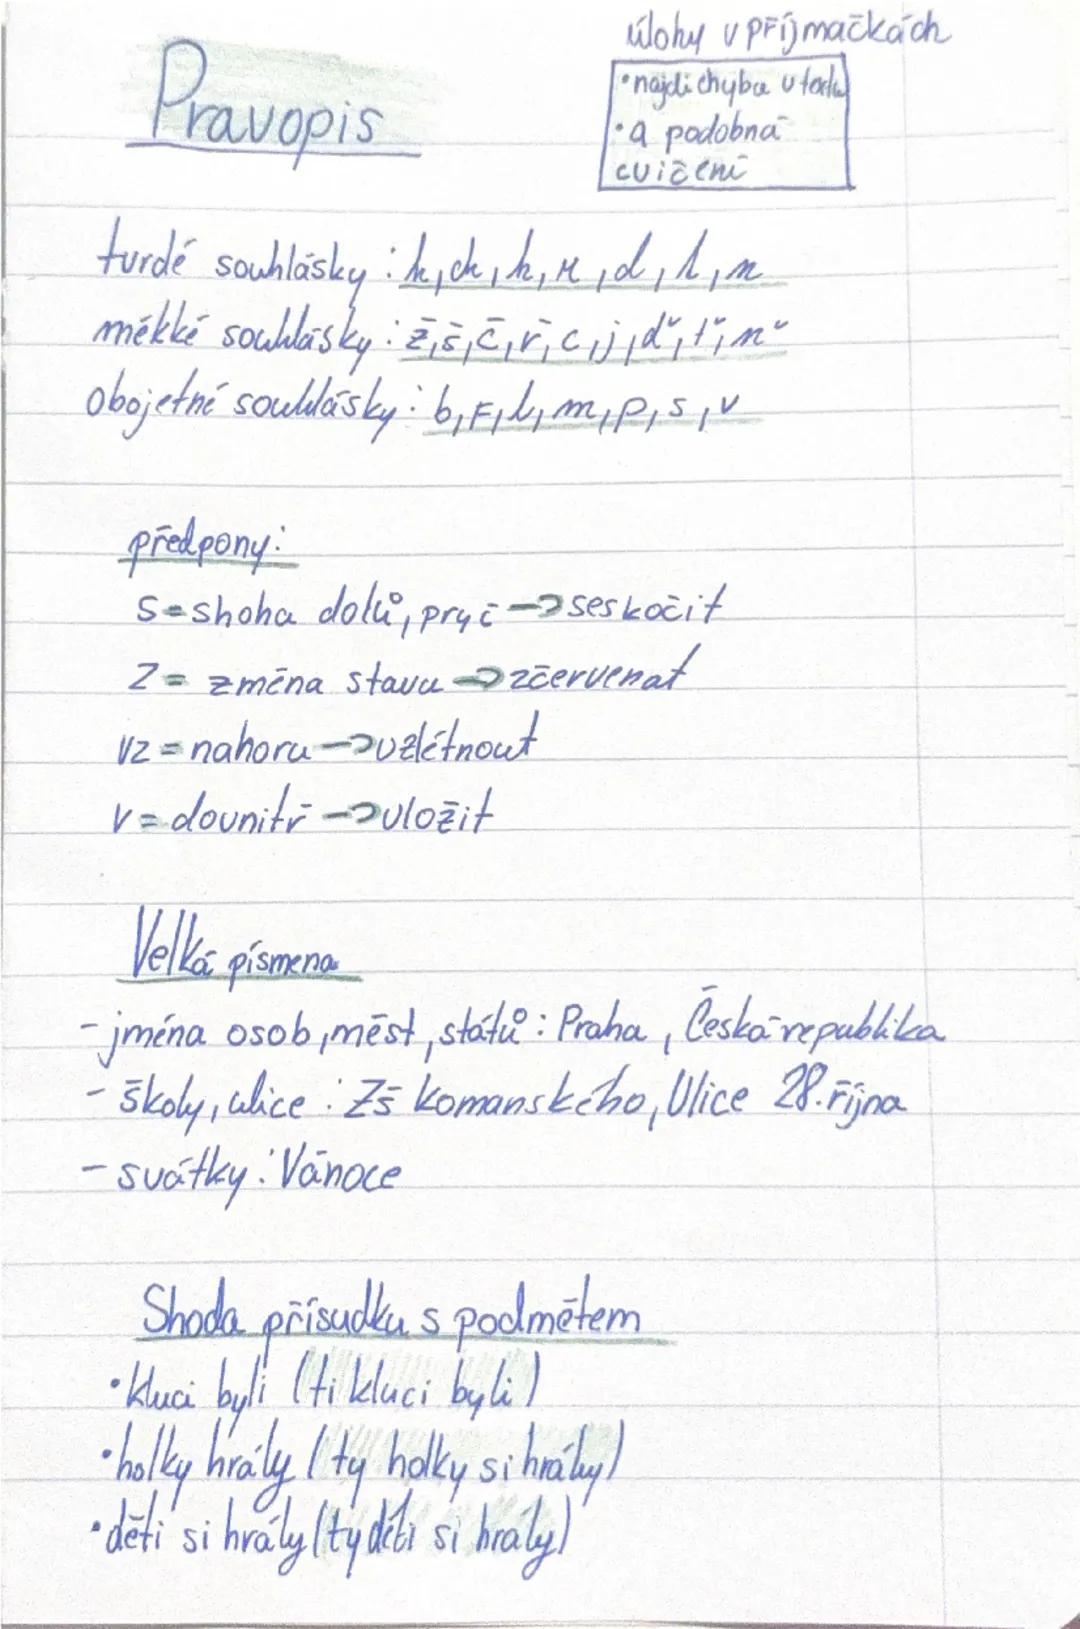 úlohy v přijmačkách
Pravopis
• najdi chybu v textu
• a podobná
cvičení
tvrdé souhlásky : h, ch, k, r, d, t, n
měkké souhlásky : ž, š, č, ř, c, j, ď, ť, ň
obojetné souhlásky : b, f, l, m, p, s, v
předpony:
s = shoha dolů, pryč → seskočit
z = změna stavu → zčervenat
vz = nahoru → vzlétnout
v = dovnitř → vložit
Velká písmena
- jména osob, měst, států : Praha, Česká republika
- školy, ulice : Zš Komanského, Ulice 28. října
- svátky : Vánoce
Shoda přísudku s podmětem
• kluci byli (ti kluci byli)
• holky hrály (ty holky si hrály)
• děti si hrály (ty děti si hrály)